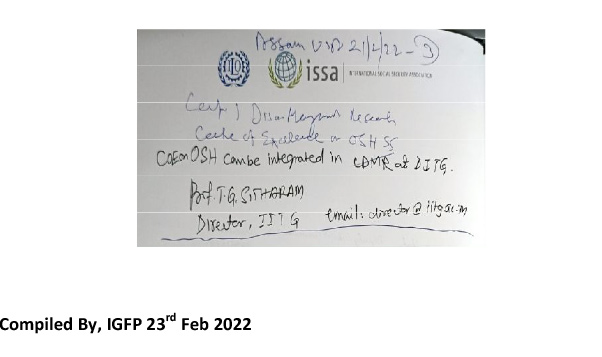 Assam 21/2/22 - 3
ILO issa INTERNATIONAL SOCIAL SECURITY ASSOCIATION
Research
Centre of Excellence on OSH SS
CoE on OSH can be integrated in CDMR at IITG.
Prof. T.G. SITHARAM
Director, IITG email: director@iitg.ac.in
Compiled By, IGFP 23rd Feb 2022